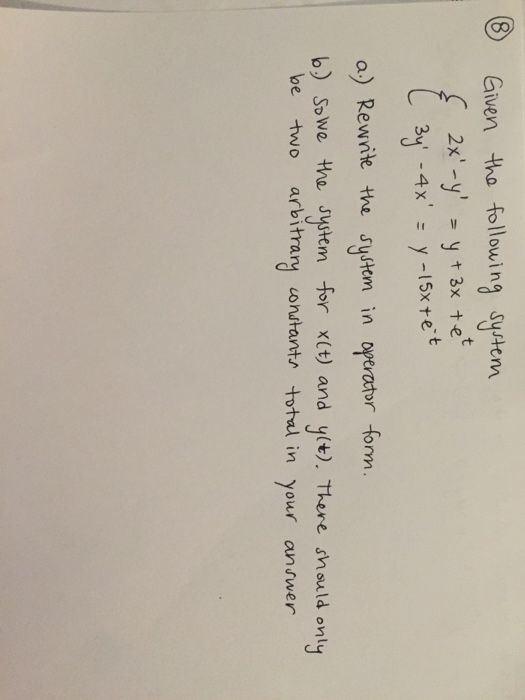 ⑧ Given the following system
{ 2x' - y' = y + 3x + e^t
3y' - 4x' = y - 15x + e^-t
a.) Rewrite the system in operator form.
b.) Solve the system for x(t) and y(t). There should only
be two arbitrary constants total in your answer